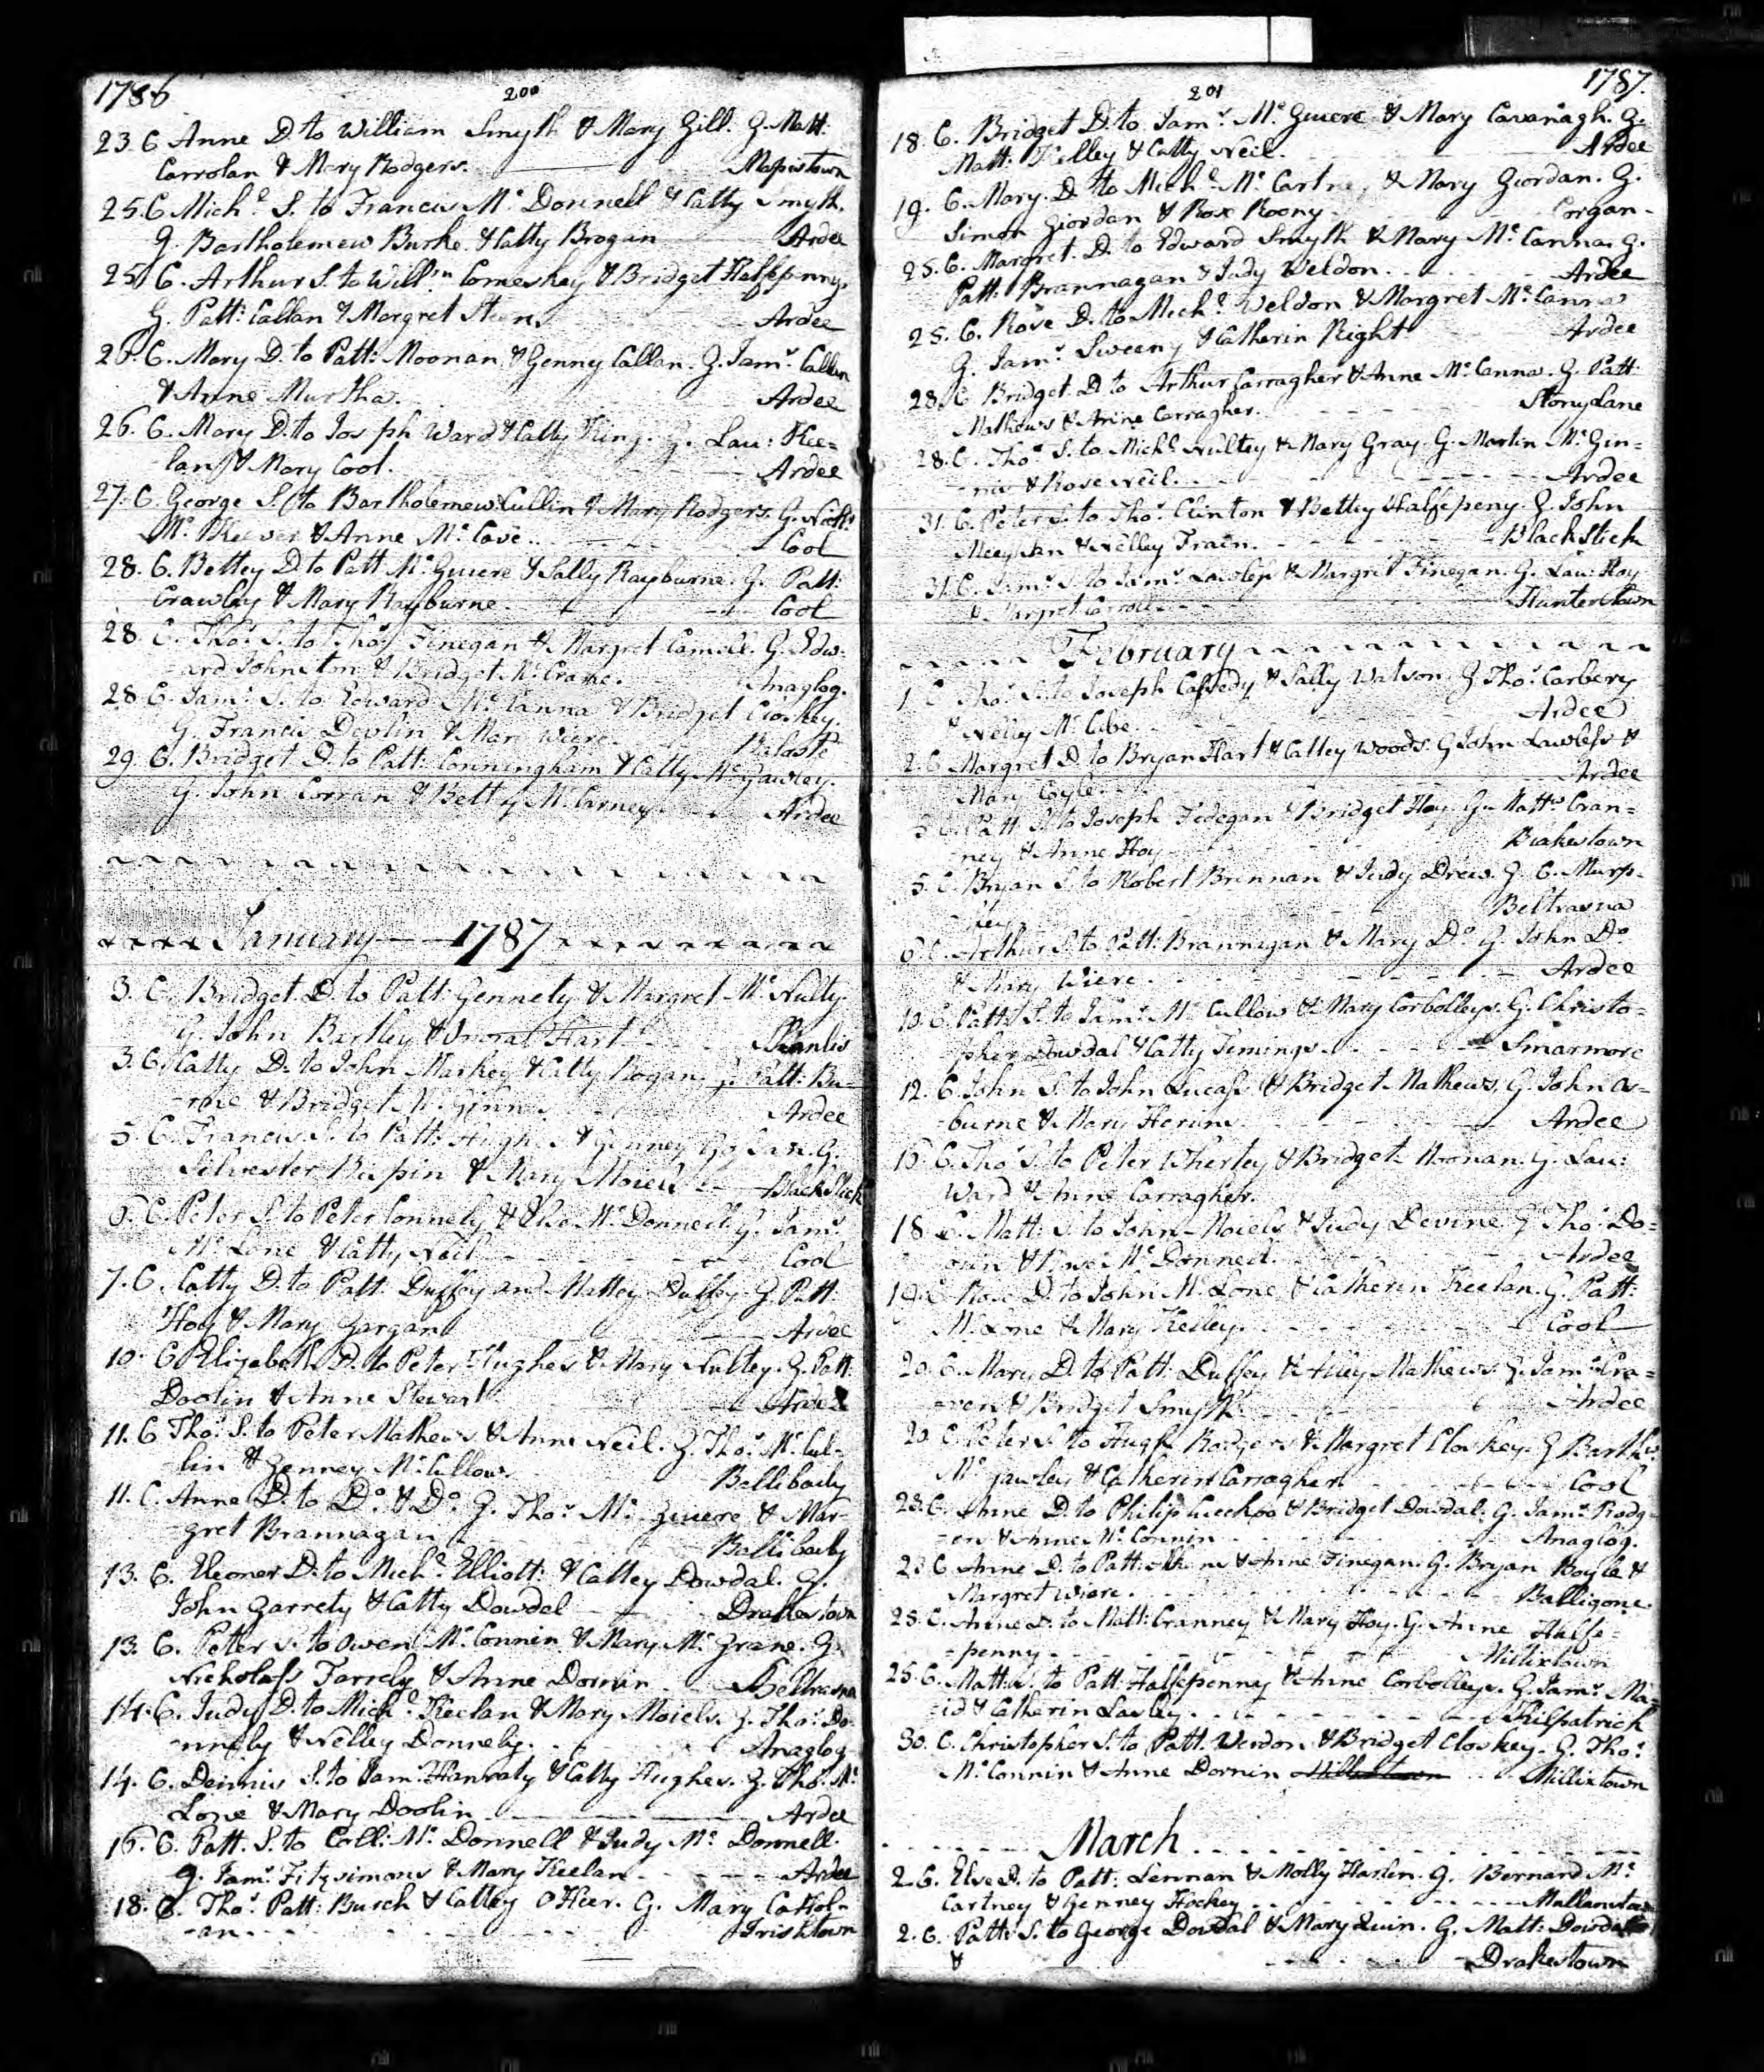 1786
200
23. C. Anne D. to William Smyth & Mary Gill. G. Matt:
Carrolan & Mary Rodgers. Mapistown
25. C. Mich.l S. to Francis Mc. Donnell & Catty Smyth.
G. Bartholemew Burke & Catty Brogan Ardee
25. C. Arthur S. to Will.m Comeskey & Bridget Halfpenny.
G. Patt: Callan & Margret Ardee
C. Mary D. to Patt: Moonan & Genny Callan. G. Jam.s Callan
& Anne Murtha. Ardee
26. C. Mary D. to Joseph Ward & Catty King. G. Lau: Kee=
lan & Mary Cool. Ardee
27. C. George S. to Bartholemew Cullin & Mary Rodgers. G. Nich.s
Mc. Keever & Anne Mc. Cave. Cool
28. C. Bettey D. to Patt Mc. Guiere & Sally Rayburne. G. Patt:
Crawley & Mary Rayburne. Cool
28. C. Tho.s S. to Tho.s Finegan & Margret G. Edw-
-ard Johnston & Bridget Mc. Crane. Anaglog.
28. C. Jam.s S. to Edward Mc. Canna & Bridget Croskey.
G. Francis Devlin & Mary Wiere.
29. C. Bridget D. to Patt: Conningham & Catty Mc. Gawley.
G. John Corran & Betty Mc. Carney. Ardee
January 1787
3. C. Bridget D. to Patt: Gennety & Margret Mc. Nulty.
G. John Bartley & Hart
3. C. Catty D. to John Markey & Catty Rogan. G. Patt: Bu-
& Bridget Mc. Ardee
5. C. Francis S. to Patt: Hughes & Genney G.
Silvester & Mary Moiels Blackstick
C. Peter S. to Peter Connely & Mc. Donnell. G. Jam.s
Mc. Lone & Catty Neil Cool
7. C. Catty D. to Patt: Duffey and Mattey Duffey. G. Patt:
Hoy & Mary Gargan Ardee
10. C. Elizebeth D. to Peter Hughes & Mary Nultey. G. Patt:
Doolin & Anne Stewart Ardee
11. C. Tho.s S. to Peter Mathews & Anne Neil. G. Tho.s Mc. Cul-
lin & Genney Mc. Cullow. Ballibaily
11. C. Anne D. to Do. & Do. G. Tho.s Mc. Guiere & Mar-
-gret Brannagan Ballibaily
13. C. Eleoner D. to Mich.l Elliott: & Cattey Dowdal. G.
John Garrety & Catty Dowdal Drakestown
13. C. Peter S. to Owen Mc. Connin & Mary Mc. Grane. G.
Nicholass Farrely & Anne Dornin Beltrasna
14. C. Judy D. to Mich.l Keelan & Mary Moiels. G. Tho.s Do-
-nnely & Nelley Donnely. Anaglog
14. C. Dennis S. to Jam.s Hanraty & Catty Hughes. G. Tho.s Mc.
Lone & Mary Doolin Ardee
C. Patt. S. to Coll: Mc. Donnell & Judy Mc. Donnell.
G. Jam.s Fitzsimons & Mary Keelan Ardee
18. C. Tho.s Patt: Burch & Cattey OHeer. G. Mary Cattol-
-an Irishtown
1787.
201
18. C. Bridget D. to Jam.s Mc. Guiere & Mary Cavanagh. G.
Matt: Kelley & Catty Neil. Ardee
19. C. Mary D. to Mich.l Mc. & Mary Giordan. G.
Simon Giordan & Rose Roony Corgan
25. C. Margret D. to Edward Smyth & Mary Mc. Canna. G.
Patt: Brannagan & Judy Weldon. Ardee
25. C. Rose D. to Mich.l Weldon & Margret Mc. Canna
G. Jam.s Sweeny & Catherin Right Ardee
28. C. Bridget D. to Arthur Carragher & Anne Mc. Canna. G. Patt:
Mathews & Anne Carragher. Stony Lane
28. C. Tho.s S. to Mich.l Nultey & Mary Gray. G. Martin Mc. Gin=
-nis & Rose Neil. Ardee
31. C. Peter S. to Tho.s Clinton & Bettey Halfepeny. G. John
& Nelley Train. Blackstick
31. C. Jam.s S. to Jam.s Lawless & Margret Finegan. G. Lau: Hoy
& Margret Carroll Hunterstown
February
1. C. Tho.s S. to Joseph Cassedy & Sally Watson. G. Tho.s Carbery
& Nelley Mc. Cabe. Ardee
2. C. Margret D. to Bryan Hart & Cattey Woods. G. John Lawless &
Mary Coyle. Ardee
C. Patt. S. to Joseph Fedegan & Bridget Hoy. G. Matt.w Cran=
-ney & Anne Hoy
5. C. Bryan S. to Robert Brennan & Judy Drew. G. C. Murp-
-hey Beltrasna
6. C. Arthur S. to Patt: Brannagan & Mary Do. G. John Do.
& Mary Wiere. Ardee
10. C. Patt: S. to Jam.s Mc. Cullow & Mary Corbolleys. G. Christo-
pher Dowdal & Catty Jemings. Smarmore
12. C. John S. to John Lucass & Bridget Mathews. G. John Os-
-burne & Mary Ardee
C. Tho.s S. to Peter Wherley & Bridget Noonan. G. Lau:
Ward & Anne Carragher.
18. C. Matt: S. to John Moiels & Judy Devine. G. Tho.s Do=
& Mc. Donnell. Ardee
19. C. Rose D. to John Mc. Lone & Catherin Keelan. G. Patt:
Mc. Lone & Mary Kelley. Cool
20. C. Mary D. to Patt: Duffey & Alley Mathews. G. Jam.s Cra=
-ven & Bridget Smyth Ardee
20. C. Peter S. to Hugh Rodgers & Margret Closkey. G. Barth.w
Mc. Gawley & Catherin Carragher Cool
23. C. Anne D. to Philip & Bridget Dowdal. G. Jam.s Rodg-
-ers & Anne Mc. Connin Anaglog.
23. C. Anne D. to Patt: & Anne Finegan. G. Bryan Boyle &
Margret Wiere. Balligone
25. C. Anne D. to Matt: Cranney & Mary Hoy. G. Anne Halfe=
-penny Millixtown
25. C. Matt: S. to Patt: Halfepenny & Anne Corbolleys. G. Jam.s Ma=
-id & Catherin Lawley. Kilpatrick
30. C. Christopher S. to Patt. Verdon & Bridget Closkey. G. Tho.s
Mc. Connin & Anne Dornin Millixtown
March
2. C. Else D. to Patt: Lennan & Molly Harlin. G. Bernard Mc.
Cartney & Genney Hockey
2. C. Patt: S. to George Dowdal & Mary Quin. G. Matt: Dowdal
& Drakestown